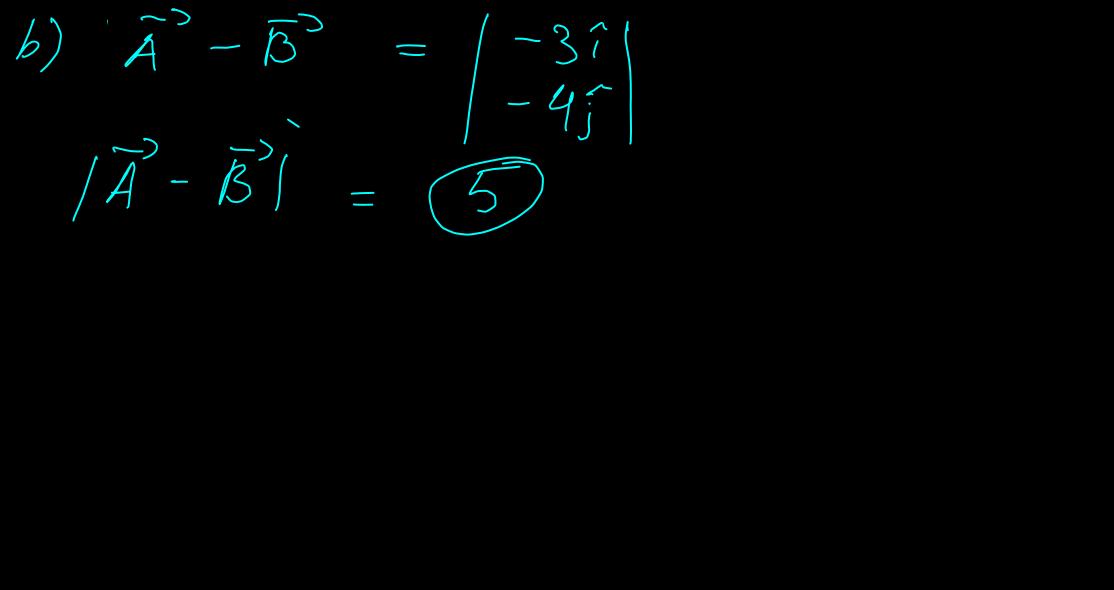 b) A⃗ - B⃗ = | -3î
-4ĵ |
|A⃗ - B⃗| = 5